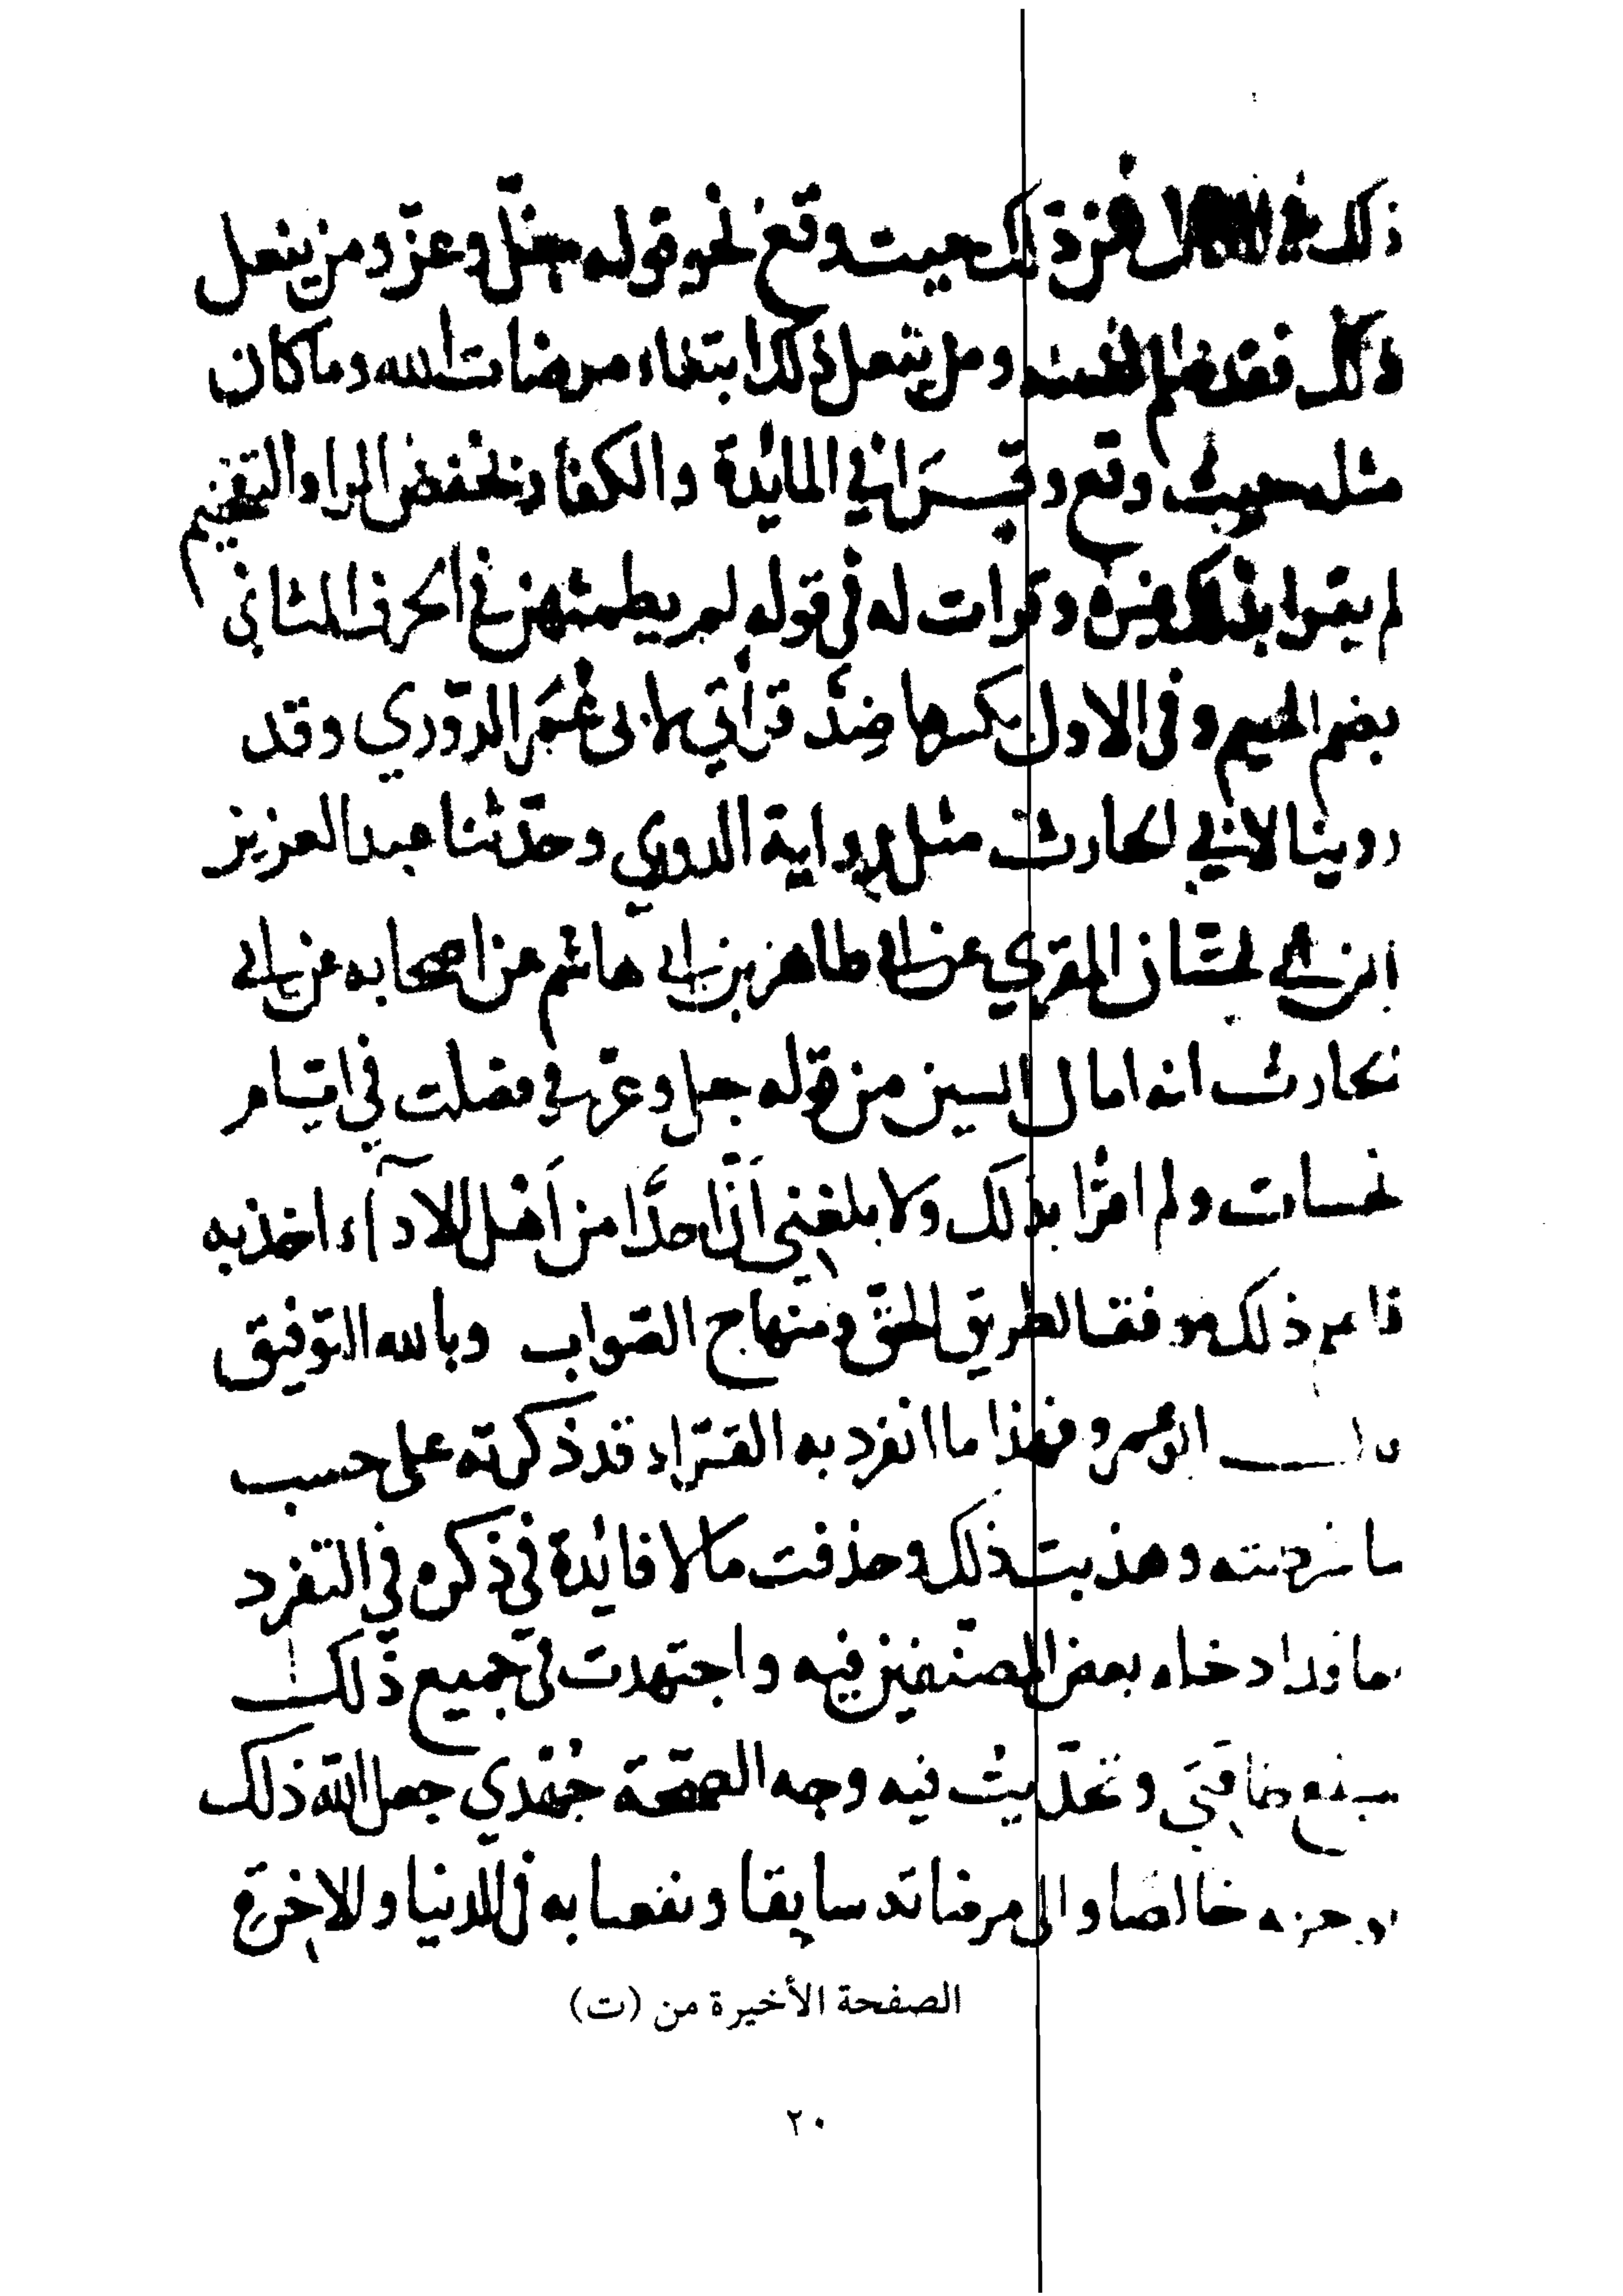 ذلك في ذلك حيث وقع نحو قوله جل وعز ومن يفعل
ذلك فقد ظلم نفسه ومن يفعل ذلك ابتغاء مرضات الله وما كان
مثله حيث وقع وقرا في المائدة والكفار بخفض الراء والتفخيم
لم يقرا بذلك غيره وقرات له في قوله لم يطمثهن في الحرف الثاني
بضم الميم وفي الاول بكسرها ضد قرأتي لابي عُمَر الدّوري وقد
روينا لابي الحارث مثل رواية الدوري وحدّثنا عبد العزيز
ابن ابي غسّان المقري عن ابي طاهر بن ابي هاشم عن اصحابه عن ابي
لحارث انه امال السين من قوله جل وعز في فصلت في ايام
نحسات ولم اقرأ بذلك ولا بلغني أنّ احدًا من أهل الادآء اخذ به
ذلك موفقا لطريق الحقّ ومنهاج الصّواب وبالله التوفيق
ابو عمرو فهذا ما انفرد به القرّاء قد ذكرته على حسب
وهذبت ذلك وحذفت ما لا فائدة في ذكره في التفرد
مما قد ادخله بعض المصنّفين فيه واجتهدت في جميع ذلك
طاقتي وتحرّيت فيه وجه الصّحة جُهْدي جعل اللّه ذلك
لوجهه خالصا والى مرضاته سابقا ونفعنا به في الدنيا والاخرة
الصفحة الأخيرة من (ت)
٢٠